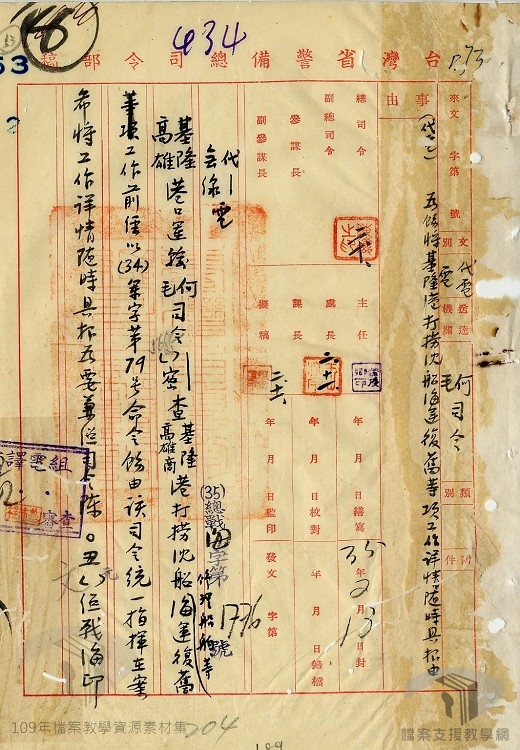 434
台灣省警備總司令部稿
事由
(代電)
為飭將基隆港打撈沈船海運復舊等項工作詳情隨時具報由
來文 字第 號
文別 代電
送達機關
何
毛 司令
類別
附件
總司令
副總司令
參謀長
副參謀長
主任
處長
課長
擬稿
年 月 日繕寫
年 月 日校對
年 月 日監印
35年2月13日封
年 月 日歸檔
發文 字第
(35)總戰海字第1776號
代電
基隆
高雄 港口運輸 何
毛 司令
密查基隆
高雄 港打撈沈船海運復舊
修理船舶等
等項工作前經以(34)
字第79號命令飭由該司令統一指揮在案
希將工作詳情隨時具報為要兼總司令陳
戰海印
譯電組
審查
204
189
109年檔案教學資源素材集
檔案支援教學網